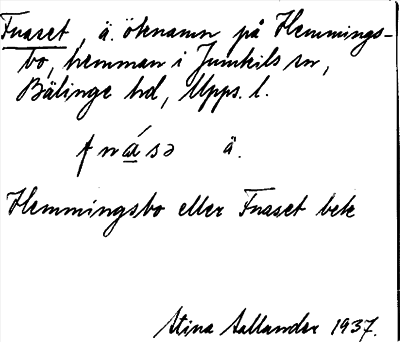 Fnaset, ä. öknamn på Hemmings-
bo, hemman i Jumkils sn,
Bälinge hd, Upps. l.
fnásə ä.
Hemmingsbo eller Fnaset bek
Stina Aallander 1937.